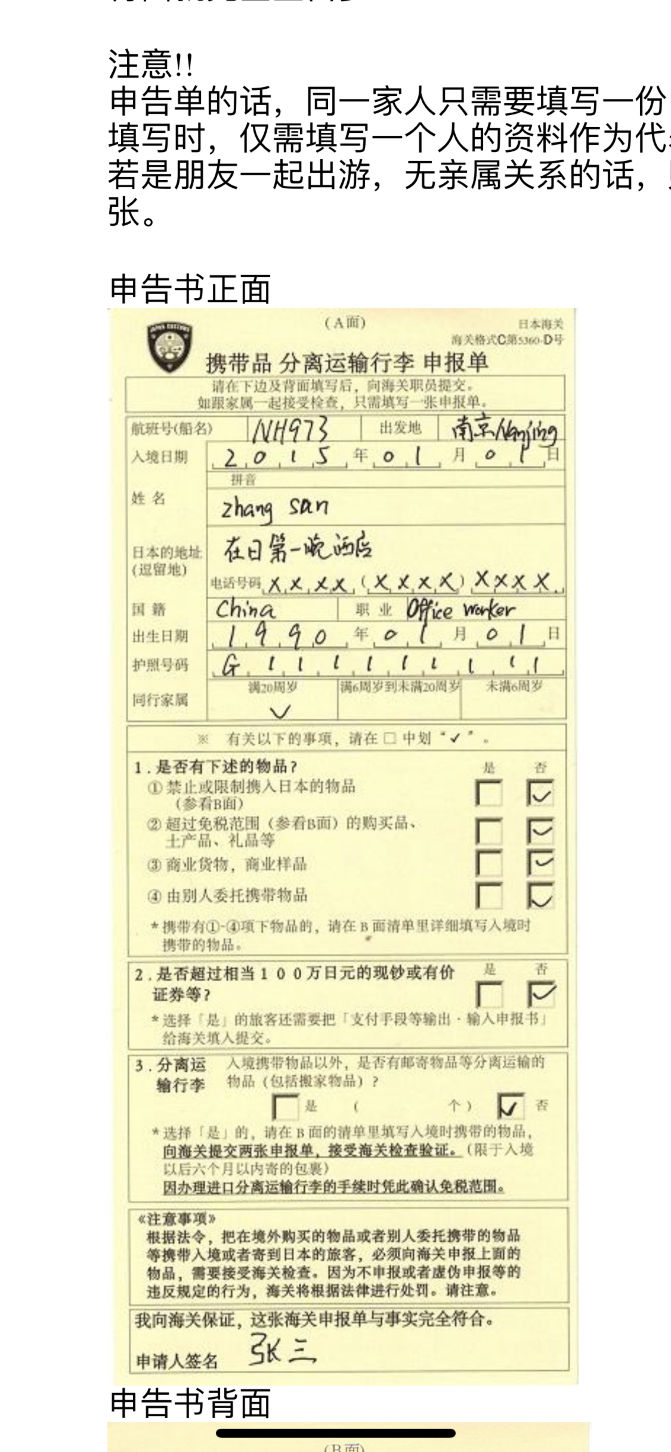 注意!!
申告单的话，同一家人只需要填写一份
填写时，仅需填写一个人的资料作为代
若是朋友一起出游，无亲属关系的话，
张。
申告书正面
(A面)
日本海关
海关格式C第5360-D号
携带品 分离运输行李 申报单
请在下边及背面填写后，向海关职员提交。
如跟家属一起接受检查，只需填写一张申报单。
航班号(船名) NH973 出发地 南京Nanjing
入境日期 2015年01月01日
拼音
姓 名 zhang san
日本的地址 在日第一晚酒店
(逗留地)
电话号码 XXXX(XXXX)XXXX
国 籍 China 职 业 Office worker
出生日期 1990年01月01日
护照号码 G111111111
满20周岁 满6周岁到未满20周岁 未满6周岁
同行家属 ✓
※ 有关以下的事项，请在□中划“✓”。
1.是否有下述的物品? 是 否
①禁止或限制携入日本的物品
(参看B面)
②超过免税范围（参看B面）的购买品、
土产品、礼品等
③商业货物，商业样品
④由别人委托携带物品
*携带有①-④项下物品的，请在B面清单里详细填写入境时
携带的物品。
2.是否超过相当100万日元的现钞或有价 是 否
证券等?
*选择「是」的旅客还需要把「支付手段等输出·输入申报书」
给海关填入提交。
3.分离运 入境携带物品以外，是否有邮寄物品等分离运输的
输行李 物品（包括搬家物品）?
是 ( 个) 否
*选择「是」的，请在B面的清单里填写入境时携带的物品，
向海关提交两张申报单，接受海关检查验证。(限于入境
以后六个月以内寄的包裹)
因办理进口分离运输行李的手续时凭此确认免税范围。
《注意事项》
根据法令，把在境外购买的物品或者别人委托携带的物品
等携带入境或者寄到日本的旅客，必须向海关申报上面的
物品，需要接受海关检查。因为不申报或者虚伪申报等的
违反规定的行为，海关将根据法律进行处罚。请注意。
我向海关保证，这张海关申报单与事实完全符合。
申请人签名 张三
申告书背面
(B面)